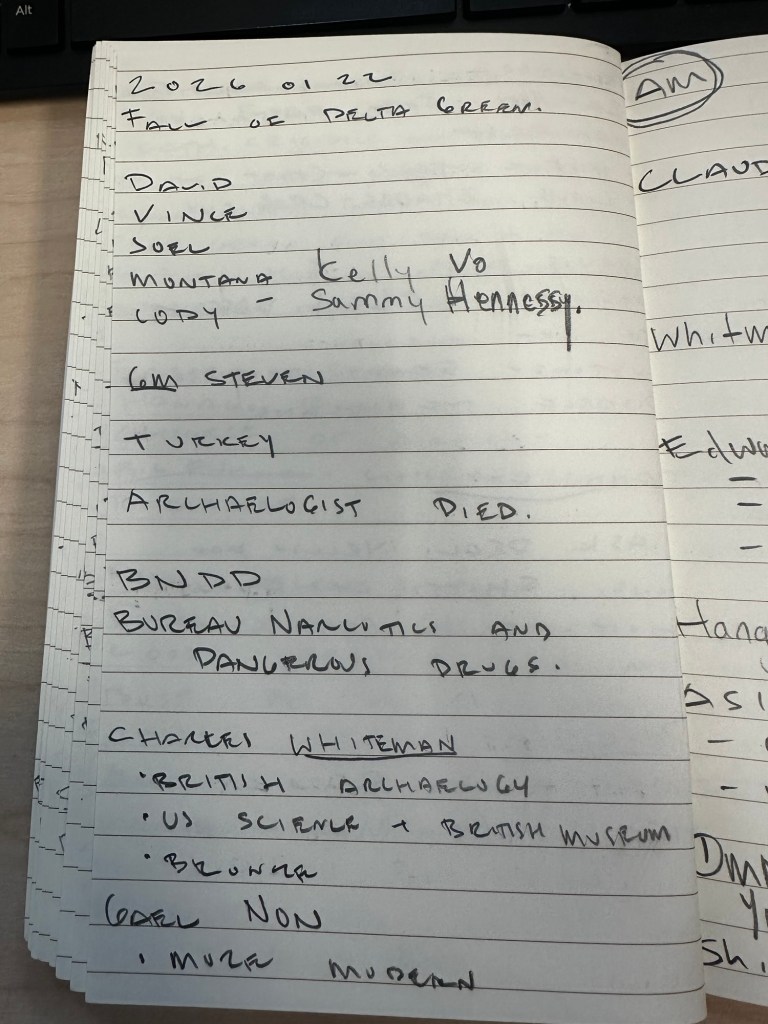 Alt
2026 01 22
FALL OF DELTA GREEN.
DAVID
VINCE
JOEL
MONTANA Kelly Vo
CODY - Sammy Hennessy.
GM STEVEN
TURKEY
ARCHAELOGIST DIED.
BNDD
BUREAU NARCOTICS AND
DANGEROUS DRUGS.
CHARLES WHITEMAN
• BRITISH ARCHAELOGY
• US SCIENCE + BRITISH MUSEUM
• BRONZE
NON
• MORE MODERN
AM
CLAUD
Whitm
Edwa
-
-
-
Hang
ASI
-
-
Sh